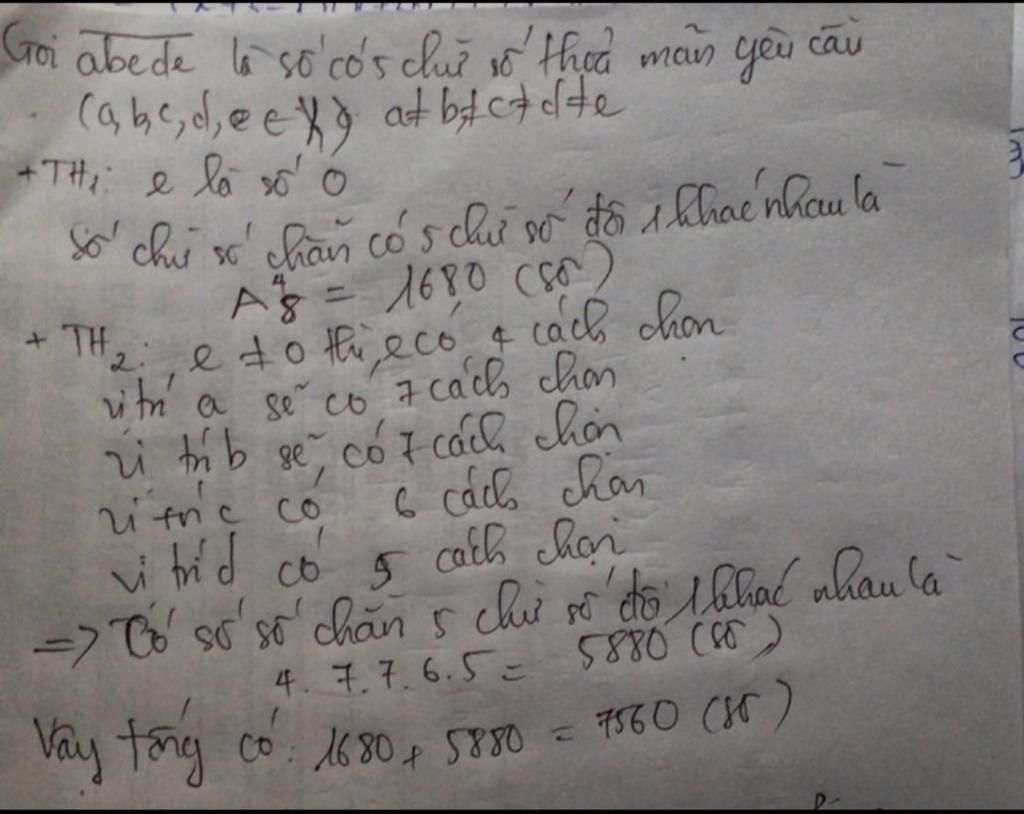 Gọi abcde là số có 5 chữ số thoả mãn yêu cầu
(a, b, c, d, e ∈ X) a ≠ b ≠ c ≠ d ≠ e
+ TH1: e là số 0
Số chữ số chẵn có 5 chữ số đôi 1 khác nhau là
A⁴₈ = 1680 (số)
+ TH2: e ≠ 0 thì e có 4 cách chọn
vị trí a sẽ có 7 cách chọn
vị trí b sẽ có 7 cách chọn
vị trí c có 6 cách chọn
vị trí d có 5 cách chọn
=> Có số số chẵn 5 chữ số đôi 1 khác nhau là
4. 7. 7. 6. 5 = 5880 (số)
Vậy tổng có: 1680 + 5880 = 7560 (số)